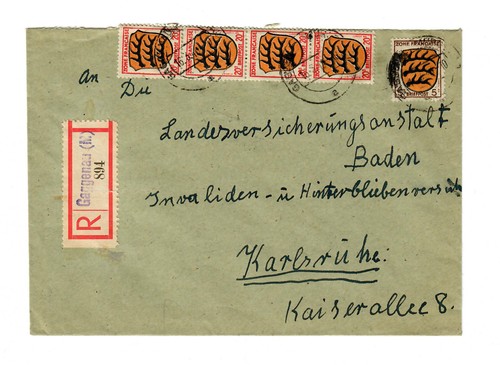 ZONE FRANÇAISE ZONE FRANÇAISE ZONE FRANÇAISE ZONE FRANÇAISE
20 20 20 20
ZONE FRANÇAISE
5
An
Die
Landesversicherungsanstalt
Baden
Invaliden - u Hinterbliebenversich
Karlsruhe.
Kaiserallee 8.
R
Gaggenau
894